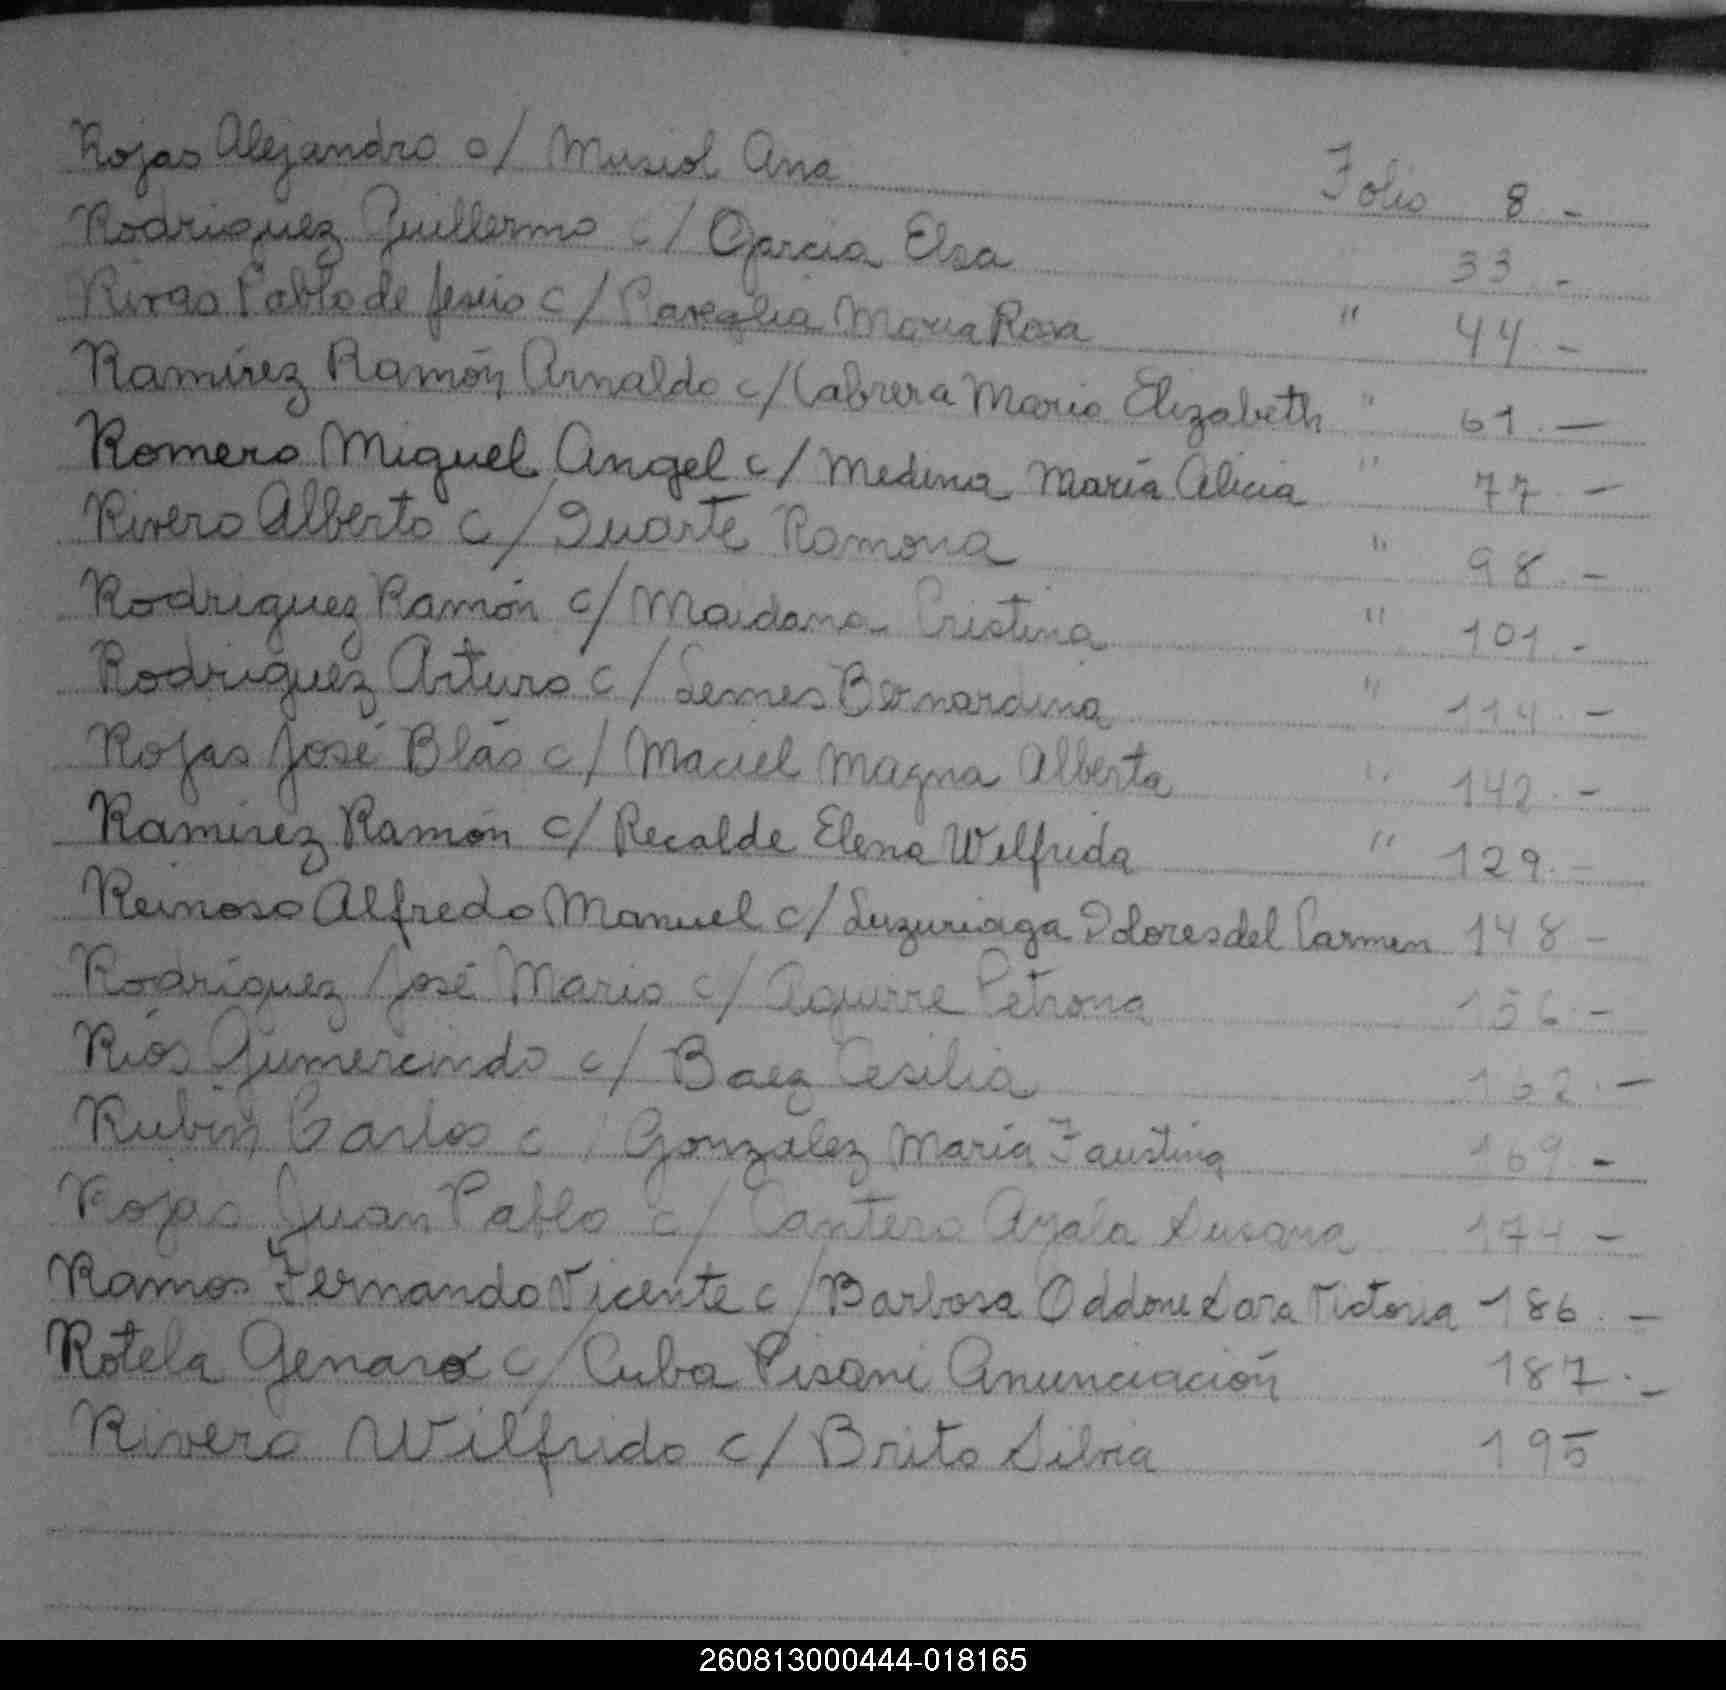 Rojas Alejandro c/ Musiol Ana Folio 8.-
Rodriguez Guillermo c/ Garcia Elsa 33.-
Rivas Pablo de Jesús c/ María Rosa " 44.-
Ramírez Ramón Arnaldo c/ Cabrera Maria Elizabeth " 61.-
Romero Miguel Angel c/ Medina María Alicia " 77.-
Rivero Alberto c/ Duarte Ramona " 98.-
Rodriguez Ramón c/ Maidana Cristina " 101.-
Rodriguez Arturo c/ Lemes Bernardina " 114.-
Rojas José Blás c/ Maciel Magna Alberta " 142.-
Ramirez Ramón c/ Recalde Elena Wilfrida " 129.-
Reinoso Alfredo Manuel c/ Luzuriaga Dolores del Carmen 148-
Rodríguez José Mario c/ Aguirre Petrona 156.-
Ríos Gumercindo c/ Baez Cesilia 162.-
Rubin Carlos c/ Gonzalez María Faustina 169.-
Rojas Juan Pablo c/ Cantero Ayala Susana 174-
Ramos Fernando Vicente c/ Barbosa Oddone Sara Victoria 186.-
Rotela Genaro c/ Cuba Pisani Anunciación 187.-
Rivero Wilfrido c/ Brito Silvia 195
260813000444-018165